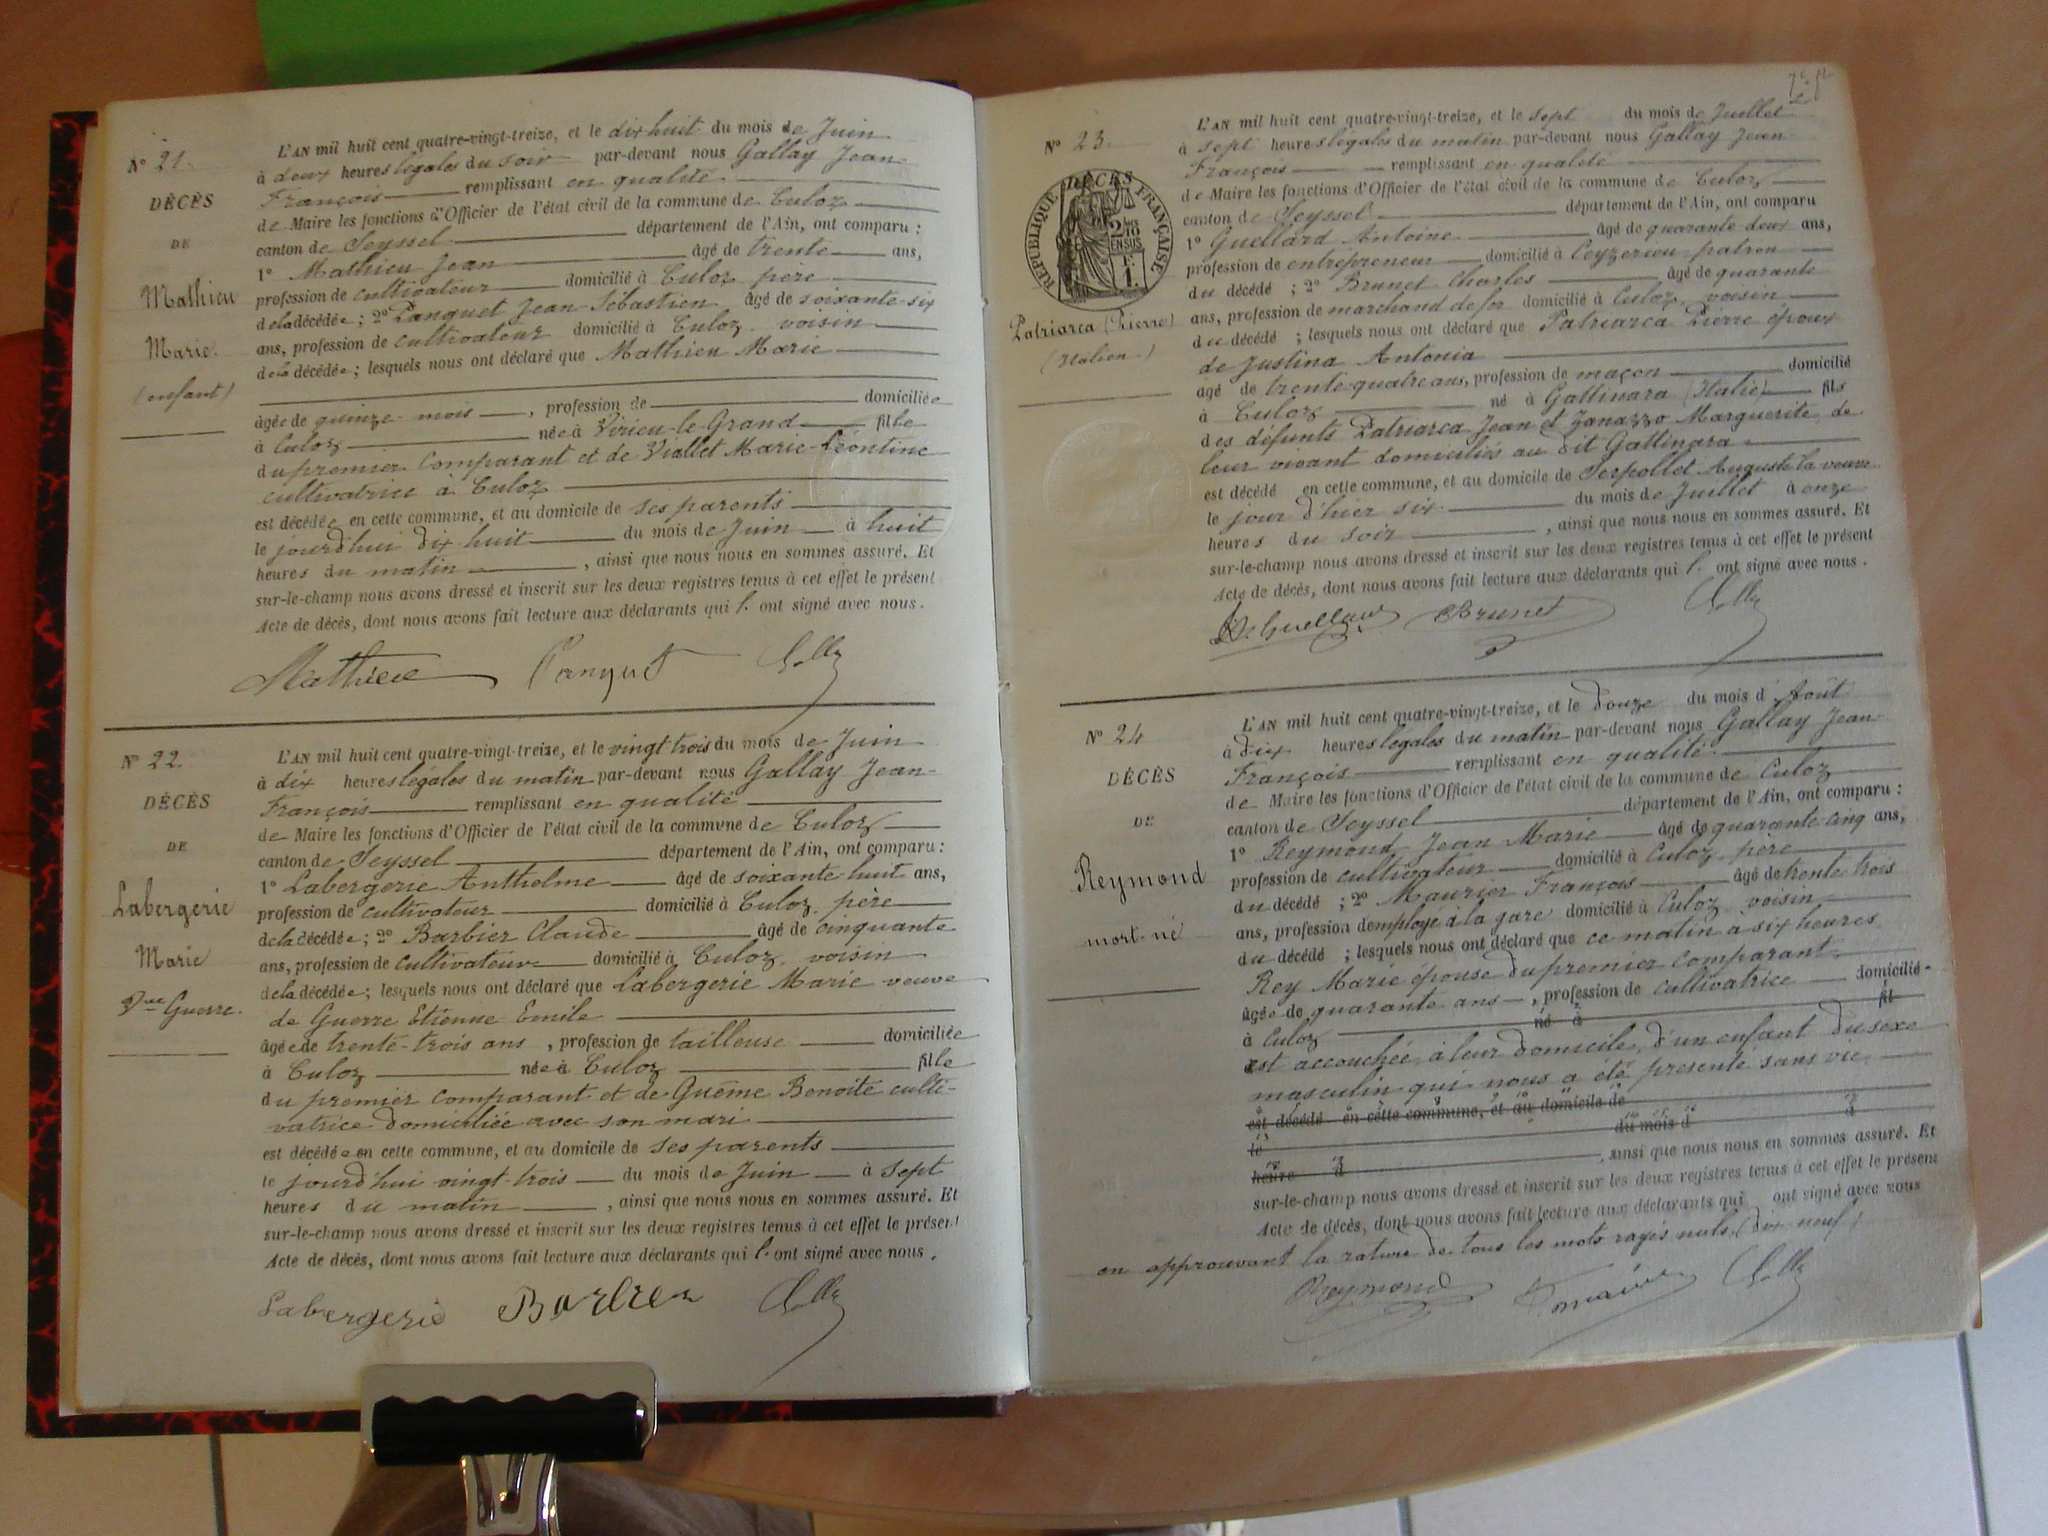 N° 21.
DÉCÈS
DE
Mathieu
Marie.
(enfant)
L'AN mil huit cent quatre-vingt-treize, et le dix huit du mois de Juin
à deux heures légales du soir par-devant nous Gallay Jean-
François remplissant en qualité
de Maire les fonctions d'Officier de l'état civil de la commune de Culoz
canton de Seyssel département de l'Ain, ont comparu :
1° Mathieu Jean âgé de trente ans,
profession de cultivateur domicilié à Culoz père
de la décédée ; 2° Panguet Jean Sébastien âgé de soixante-six
ans, profession de cultivateur domicilié à Culoz voisin
de la décédée ; lesquels nous ont déclaré que Mathieu Marie
âgée de quinze mois , profession de domiciliée
à Culoz née à Virieu-le-Grand fille
du premier comparant et de Viallet Marie-Léontine
cultivatrice à Culoz
est décédée en cette commune, et au domicile de ses parents
le jourd'hui dix huit du mois de Juin à huit
heures du matin , ainsi que nous nous en sommes assuré. Et
sur-le-champ nous avons dressé et inscrit sur les deux registres tenus à cet effet le présent
Acte de décès, dont nous avons fait lecture aux déclarants qui l' ont signé avec nous.
Mathieu Panguet Gallay
N° 22.
DÉCÈS
DE
Labergerie
Marie
Vve Guerre.
L'AN mil huit cent quatre-vingt-treize, et le vingt trois du mois de Juin
à dix heures légales du matin par-devant nous Gallay Jean-
François remplissant en qualité
de Maire les fonctions d'Officier de l'état civil de la commune de Culoz
canton de Seyssel département de l'Ain, ont comparu :
1° Labergerie Anthelme âgé de soixante huit ans,
profession de cultivateur domicilié à Culoz père
de la décédée ; 2° Barbier Claude âgé de cinquante
ans, profession de cultivateur domicilié à Culoz voisin
de la décédée ; lesquels nous ont déclaré que Labergerie Marie veuve
de Guerre Etienne Emile
âgée de trente-trois ans , profession de tailleuse domiciliée
à Culoz née à Culoz fille
du premier comparant et de Guême Benoîte culti-
vatrice domiciliée avec son mari
est décédée en cette commune, et au domicile de ses parents
le jourd'hui vingt-trois du mois de Juin à sept
heures du matin , ainsi que nous nous en sommes assuré. Et
sur-le-champ nous avons dressé et inscrit sur les deux registres tenus à cet effet le présent
Acte de décès, dont nous avons fait lecture aux déclarants qui l' ont signé avec nous.
Labergerie Barbier Gallay
N° 23.
DÉCÈS
RÉPUBLIQUE FRANÇAISE
2/10
EN SUS
1 F.
Patriarca (Pierre)
(Italien)
L'AN mil huit cent quatre-vingt-treize, et le sept du mois de Juillet
à sept heures légales du matin par-devant nous Gallay Jean-
François remplissant en qualité
de Maire les fonctions d'Officier de l'état civil de la commune de Culoz
canton de Seyssel département de l'Ain, ont comparu
1° Guellard Antoine âgé de quarante deux ans,
profession de entrepreneur domicilié à Ceyzerieu patron
du décédé ; 2° Brunet Charles âgé de quarante
ans, profession de marchand de fer domicilié à Culoz voisin
du décédé ; lesquels nous ont déclaré que Patriarca Pierre époux
de Justina Antonia
âgé de trente-quatre ans, profession de maçon domicilié
à Culoz né à Gattinara (Italie) fils
des défunts Patriarca Jean et Zanazzo Marguerite, de
leur vivant domiciliés au dit Gattinara
est décédé en cette commune, et au domicile de Serpollet Auguste la veuve
le jour d'hier six du mois de Juillet à onze
heures du soir , ainsi que nous nous en sommes assuré. Et
sur-le-champ nous avons dressé et inscrit sur les deux registres tenus à cet effet le présent
Acte de décès, dont nous avons fait lecture aux déclarants qui l' ont signé avec nous.
Guellard Brunet Gallay
N° 24
DÉCÈS
DE
Reymond
mort-né
L'AN mil huit cent quatre-vingt-treize, et le douze du mois d'Août
à dix heures légales du matin par-devant nous Gallay Jean-
François remplissant en qualité
de Maire les fonctions d'Officier de l'état civil de la commune de Culoz
canton de Seyssel département de l'Ain, ont comparu :
1° Reymond Jean Marie âgé de quarante-cinq ans,
profession de cultivateur domicilié à Culoz père
du décédé ; 2° Maurier François âgé de trente trois
ans, profession d'employé à la gare domicilié à Culoz voisin
du décédé ; lesquels nous ont déclaré que ce matin à six heures
Rey Marie épouse du premier comparant
âgée de quarante ans , profession de cultivatrice domiciliée
à Culoz né à fil
est accouchée, à leur domicile, d'un enfant du sexe
masculin qui nous a été présenté sans vie
est décédé en cette commune, et au domicile de
le du mois d à
heure d , ainsi que nous nous en sommes assuré. Et
sur-le-champ nous avons dressé et inscrit sur les deux registres tenus à cet effet le présent
Acte de décès, dont nous avons fait lecture aux déclarants qui ont signé avec nous
en approuvant la rature de tous les mots rayés nuls (dix neuf)
Reymond Gallay